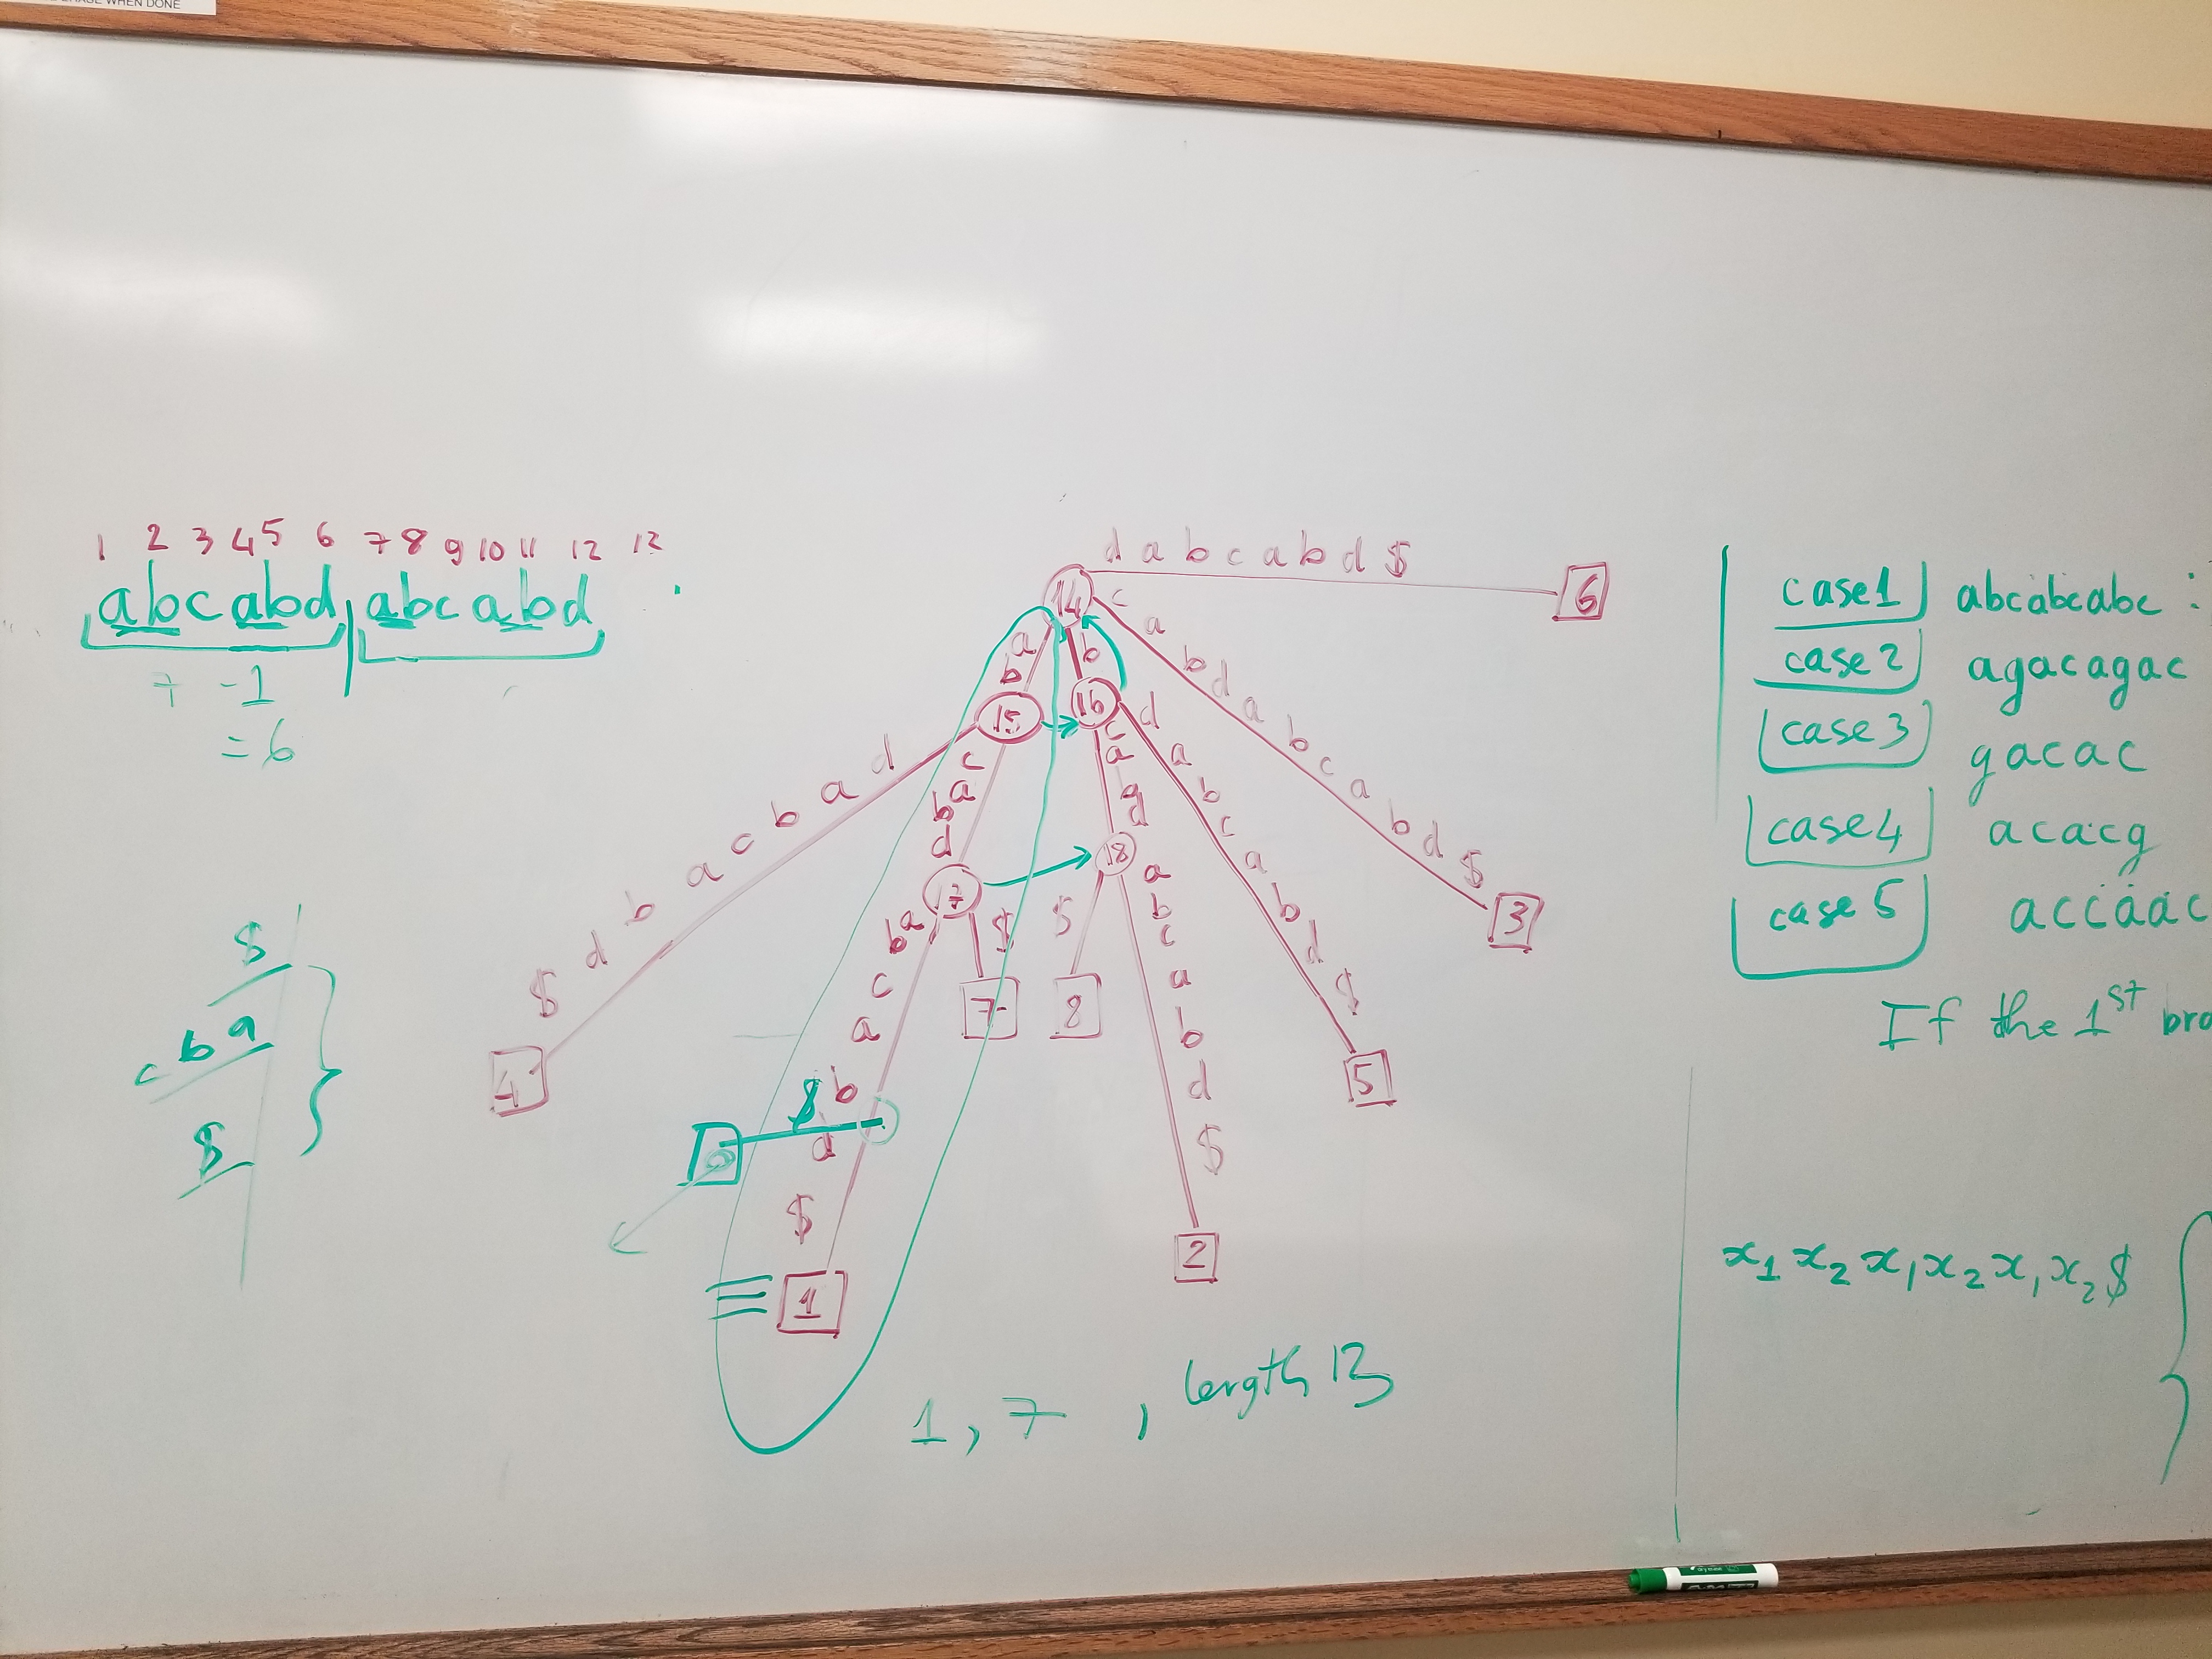 ERASE WHEN DONE
1 2 3 4 5 6 7 8 9 10 11 12 13
abcabd abcabd
7 - 1
= 6
$
c b a
$
14
d a b c a b d $
6
c a b d a b c a b d $
3
a b
15
b
16
d a b c a b d $
5
d a b c a b d $
4
c a b d
17
c a b d
18
a b c a b d $
1
$
7
$
8
a b c a b d $
2
$
1, 7, length 13
case1 abcabcabc :
case 2 agacagac
case 3 gacac
case4 acacg
case 5 accaac
If the 1st
x1 x2 x1 x2 x1 x2 $